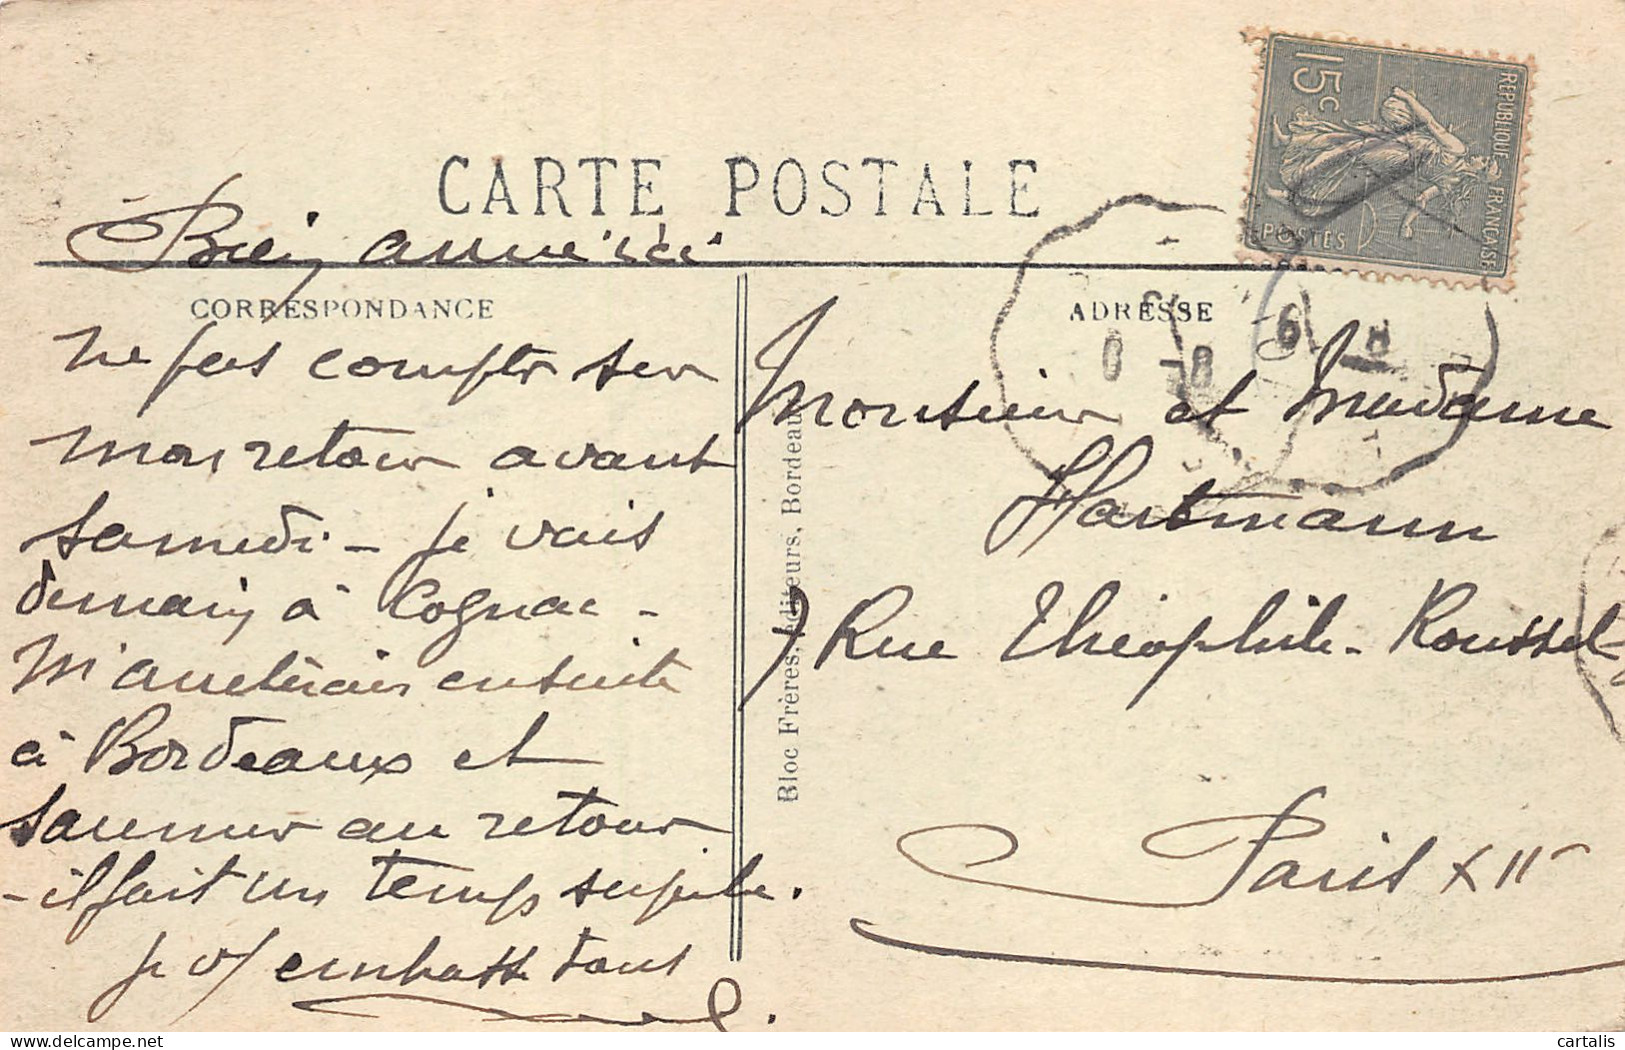 CARTE POSTALE
Bien arrivé ici
CORRESPONDANCE
ne pas compter sur
mon retour avant
samedi - je vais
demain à Cognac -
M'arrêterais ensuite
à Bordeaux et
Saumur au retour
- il fait un temps superbe.
je vs embrasse tous
Bloc Frères, éditeurs, Bordeaux
REPUBLIQUE FRANÇAISE
15c
POSTES
ADRESSE
Monsieur et Madame
Hartmann
7 Rue Théophile-Roussel
Paris XII
delcampe.net
cartalis